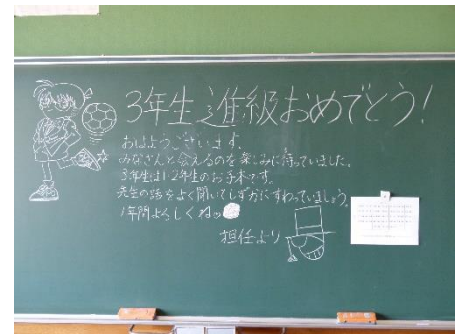 3年生進級おめでとう!
おはようございます。
みなさんと会えるのを楽しみに待っていました。
3年生は1・2年生のお手本です。
先生の話をよく聞いてしずかにすわっていましょう。
1年間よろしくね
担任より